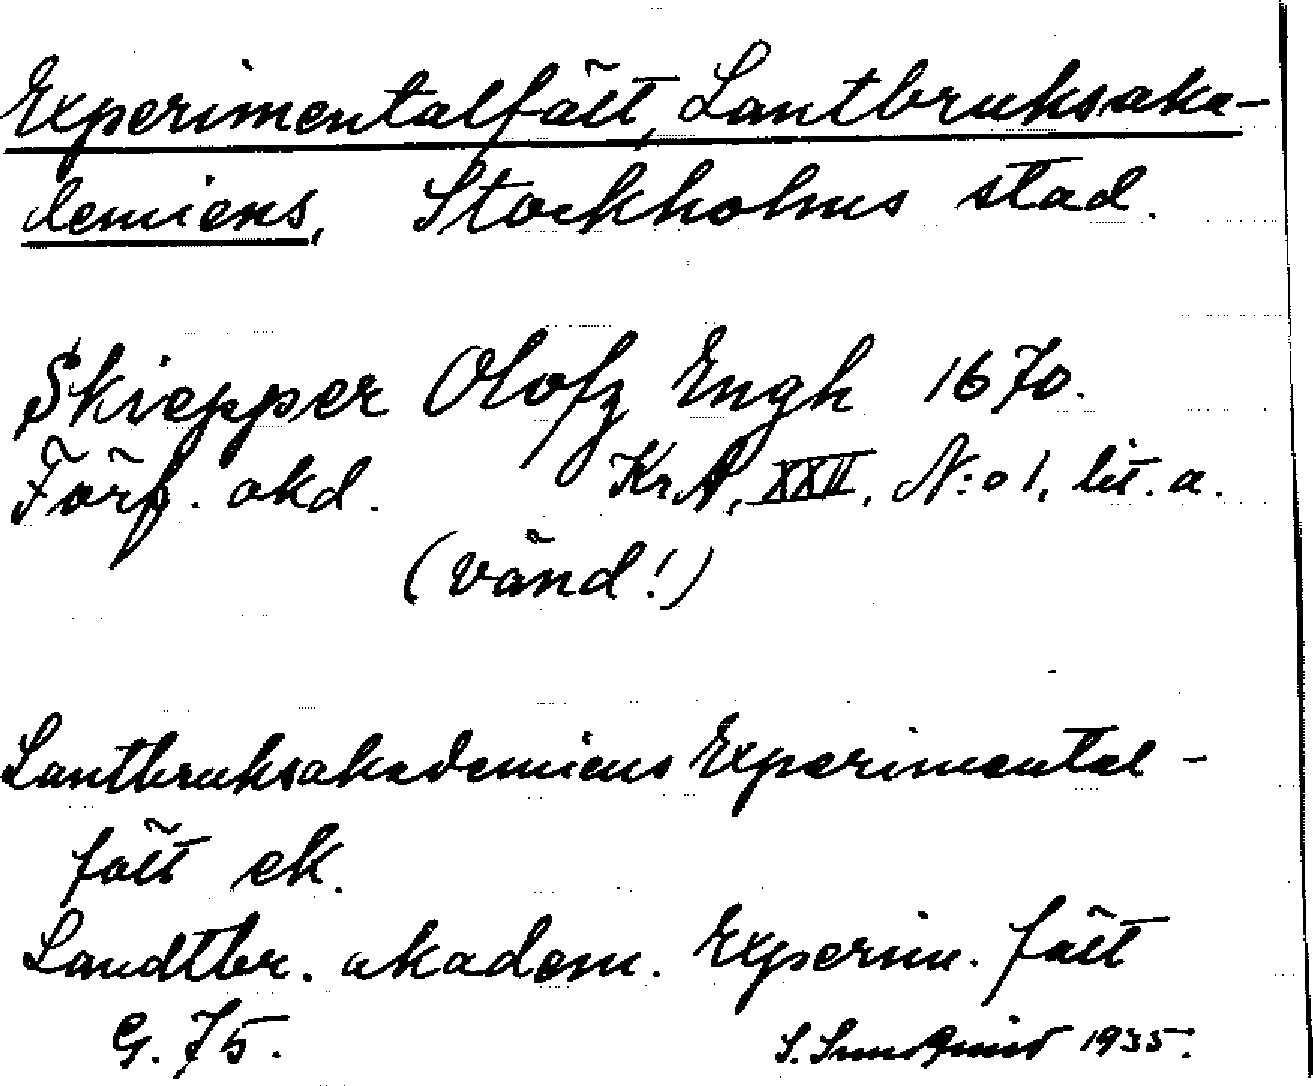 Experimentalfält, Lantbruksaka-
demiens, Stockholms stad.
Skiepper Olofz Engh 1670.
Förf. okd. KrA, XXII, N:o 1, lit. a.
(vänd!)
Lantbruksakademiens Experimental-
fält ek.
Landtbr. akadem. Experim. fält
G. 75. S. 1935.